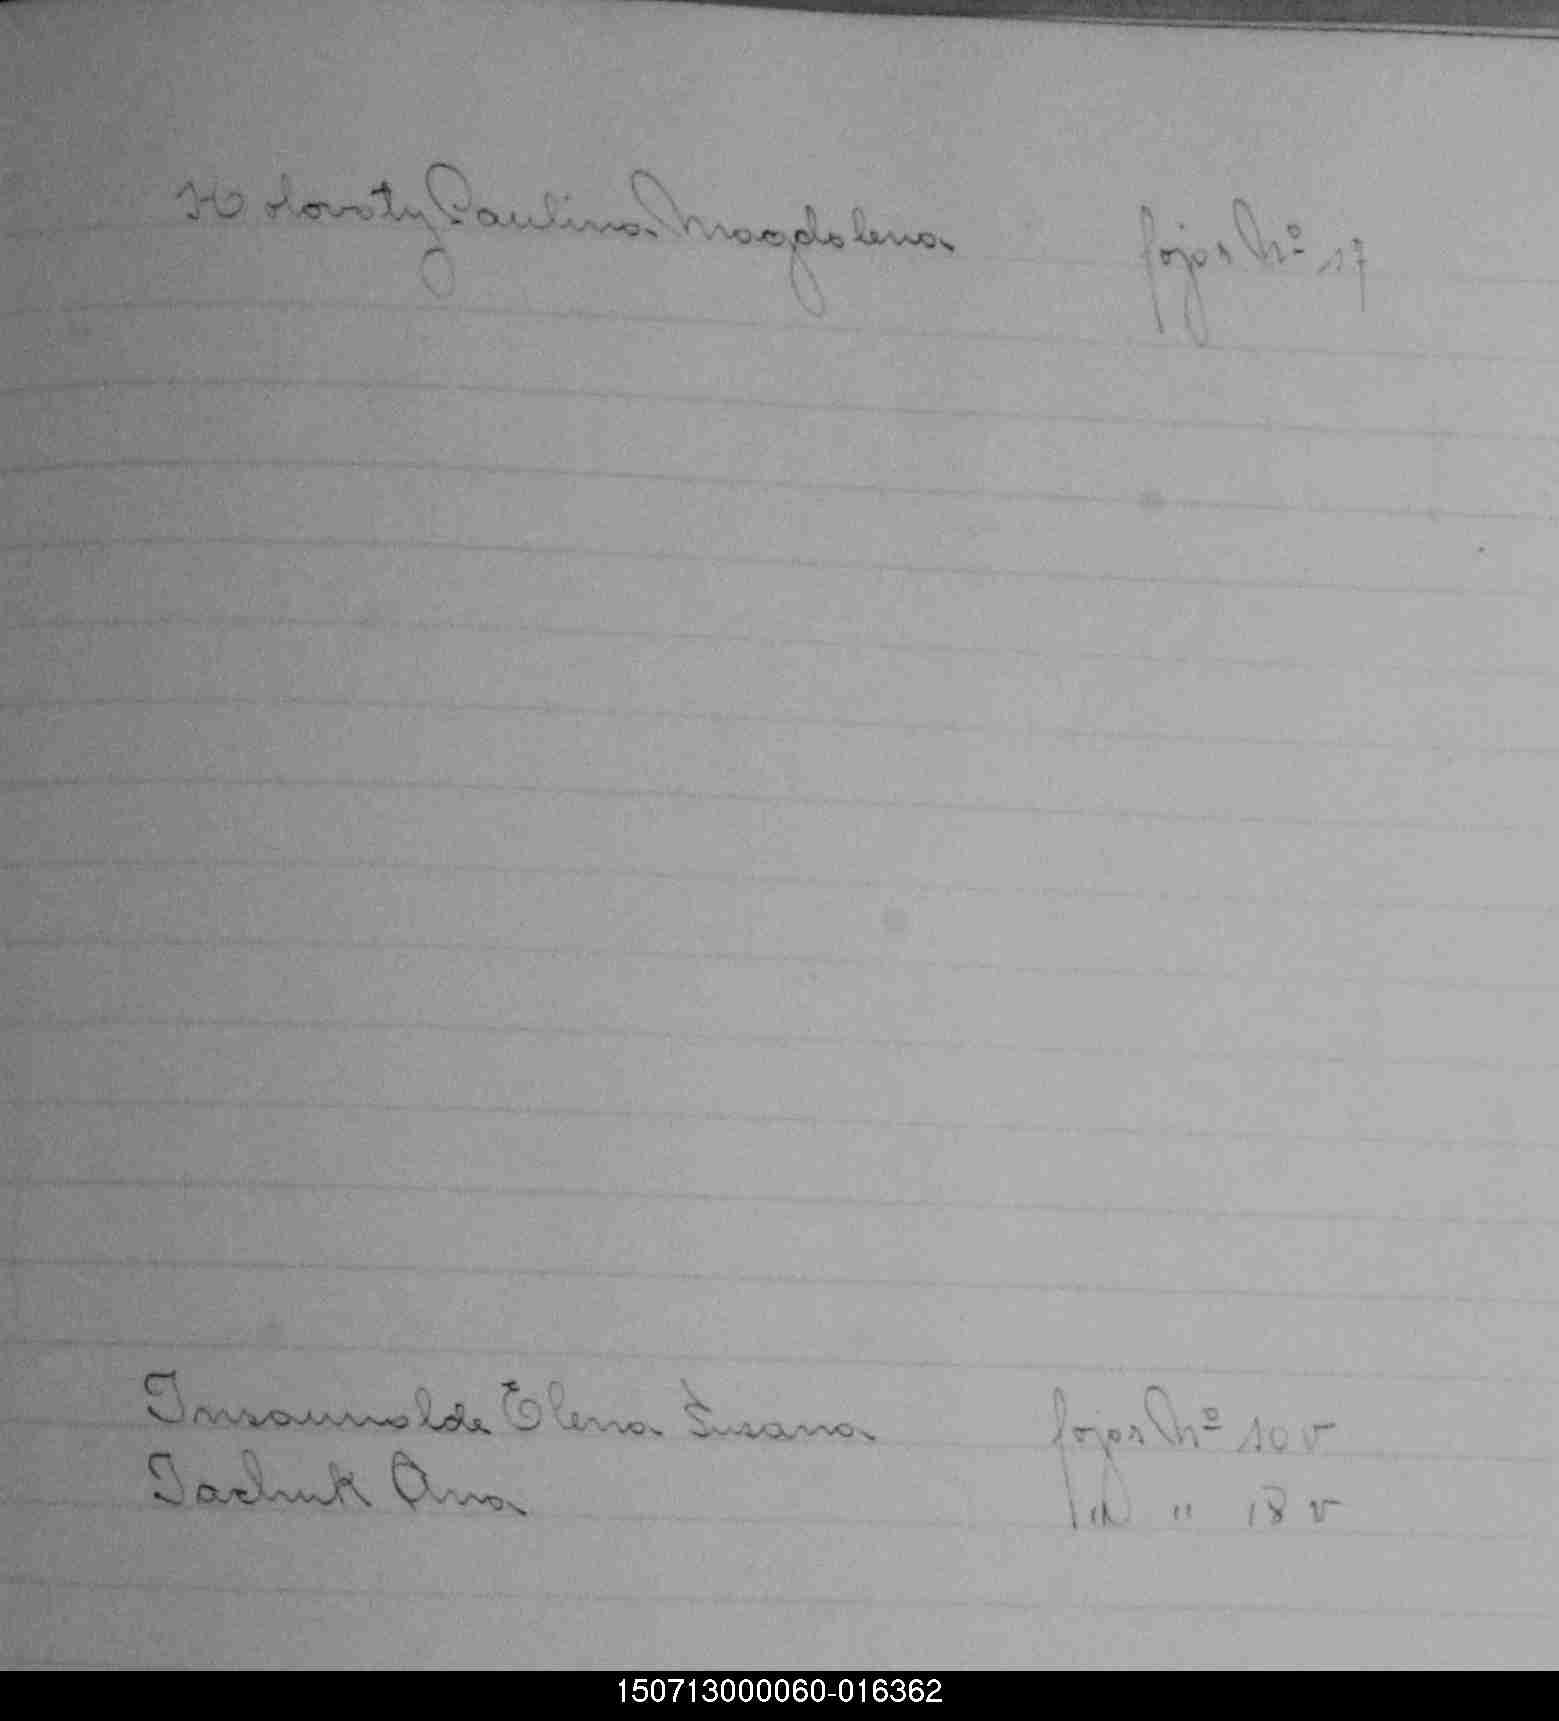 Holovaty Paulina Magdalena fojas Nº 17
Insaurralde Elena Susana fojas Nº 10 v
Iachuk Ana " " 18 v
150713000060-016362